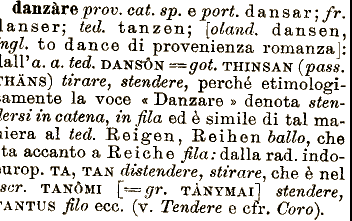 danzàre prov. cat. sp. e port. dansar; fr.
danser; ted. tanzen; [oland. dansen,
ingl. to dance di provenienza romanza]:
dall'a. a. ted. DANSÔN = got. THINSAN (pass.
THÄNS) tirare, stendere, perché etimologi-
camente la voce « Danzare » denota sten-
dersi in catena, in fila ed è simile di tal ma-
niera al ted. Reigen, Reihen ballo, che
sta accanto a Reiche fila: dalla rad. indo-
europ. TA, TAN distendere, stirare, che è nel
scr. TANÔMI [= gr. TÀNYMAI] stendere,
TANTUS filo ecc. (v. Tendere e cfr. Coro).